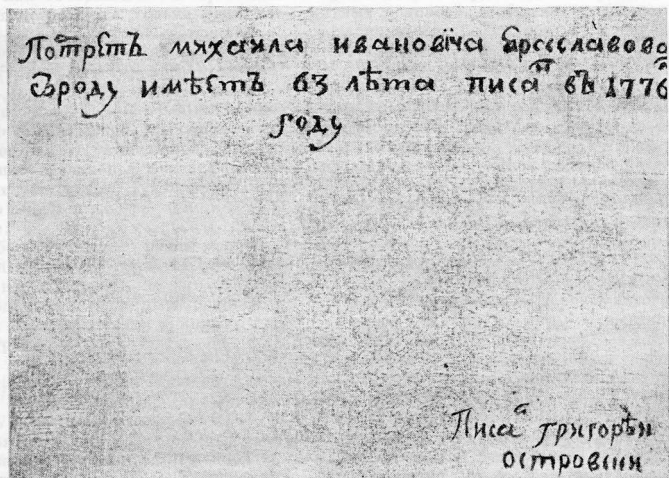 Потретъ михаила ивановїча ярославово
ѿроду имѣетъ 63 лѣта писан въ 1776
году
Писал григорѣи
островски